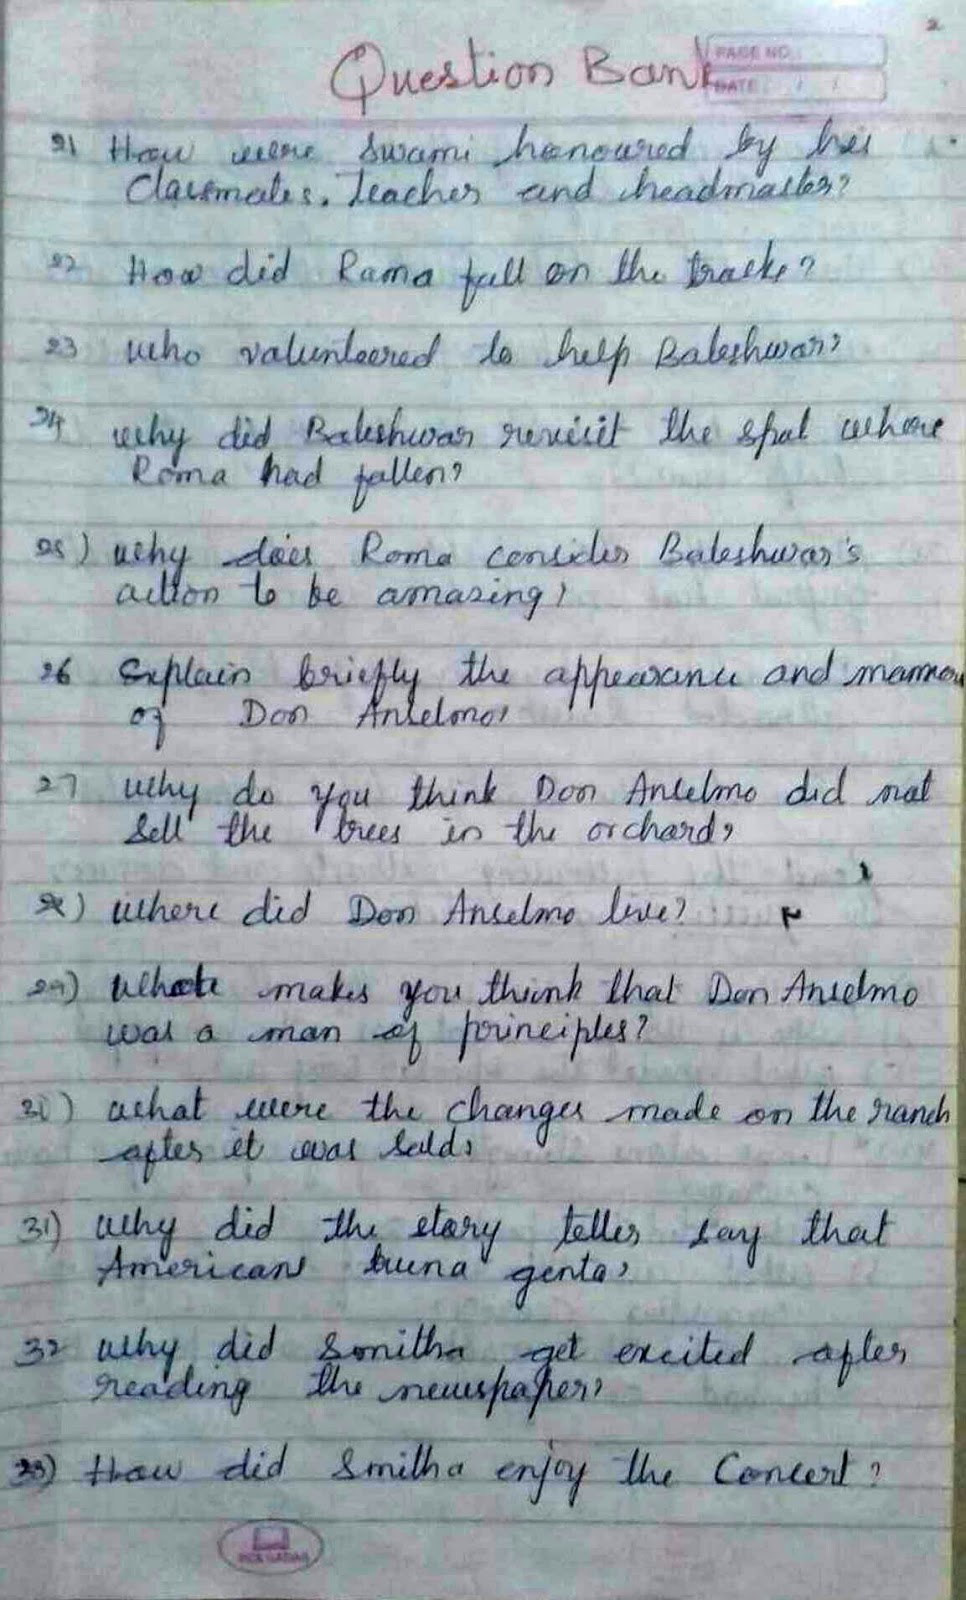 2
Question Bank
PAGE NO.
DATE: / /
21 How were Swami honoured by his
Classmates, Teacher and headmaster?
22 How did Rama fall on the tracks?
23 who valunteered to help Baleshwar?
24 why did Baleshwar revisit the spot where
Roma had fallen?
25) why does Roma consider Baleshwar's
action to be amazing?
26 Explain briefly the appearance and manner
of Don Anselmo?
27 why do you think Don Anselmo did not
sell the trees in the orchard?
28) where did Don Anselmo live?
29) what makes you think that Don Anselmo
was a man of principles?
30) what were the changes made on the ranch
after it was sold?
31) why did the story teller say that
American buena gente?
32 why did Smitha get excited after
reading the newspaper?
33) How did Smitha enjoy the Concert?